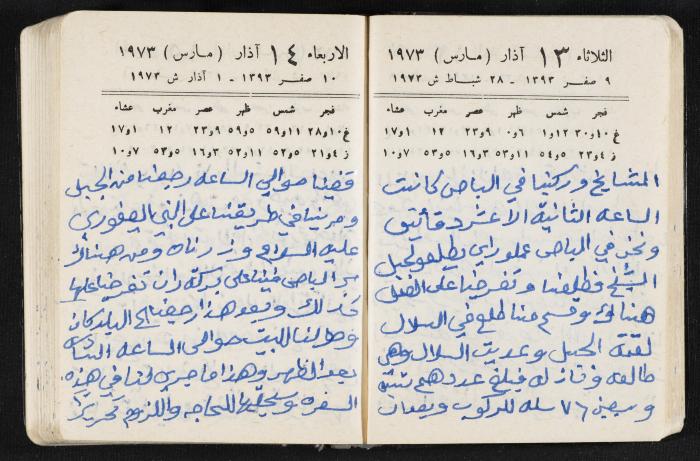 الثلاثاء ١٣ آذار (مارس) ١٩٧٣
٩ صفر ١٣٩٣ - ٢٨ شباط ش ١٩٧٣
فجر شمس ظهر عصر مغرب عشاء
غ ١٠و٣٠ ١٢و١ ٦و٠ ٩و٢٣ ١٢ ١و١٧
ز ٤و٢٣ ٥و٥٤ ١١و٥٣ ٣و١٦ ٥و٥٣ ٧و١٠
المشايخ وركبنا في الباص كانت
الساعه الثانية الا عشرة دقائق
ونحن في الباص عملو راي يطلعو لجبل
الشيخ فطلعنا وتفرجنا على الثلج
هناك وقسم منا طلع في السلال
لقمة الجبل وعديت السلال وهي
طالعه ونازله فبلغ عددهم ستة
وسبعين ٧٦ سله للركوب وبعدان
الاربعاء ١٤ آذار (مارس) ١٩٧٣
١٠ صفر ١٣٩٣ - ١ آذار ش ١٩٧٣
فجر شمس ظهر عصر مغرب عشاء
غ ١٠و٢٨ ١١و٥٩ ٥و٥٩ ٩و٢٣ ١٢ ١و١٧
ز ٤و٢١ ٥و٥٢ ١١و٥٢ ٣و١٦ ٥و٥٣ ٧و١٠
قضينا حوالي الساعه رجعنا من الجبل
ومرينا في طريقنا على النبي اليعفوري
عليه السلام وزرناه ومن هناك
الباص على بركة ران تفرجنا عليها
كذلك وبعد هذا رجعنا الى البلد كان
وصولنا للبيت حوالي الساعه
بعد الظهر وهذا ما جرى لنا في هذه
السفره وسجلتها للحاجه واللزوم تحريرا